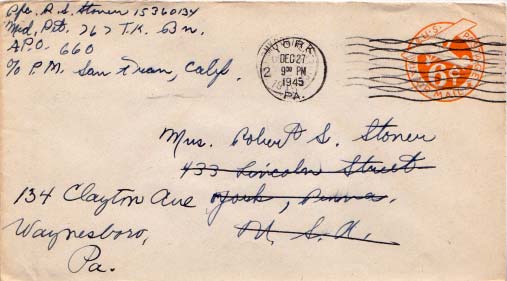 Pfc. R. S. Stoner 15360134
Med. Det. 767 T.K. Bn.
APO. 660
c/o P.M. San Fran, Calif.
YORK
DEC 27
9 00 PM
1945
PA.
2
6¢
AIR MAIL
Mrs. Robert S. Stoner
433 Lincoln Street
134 Clayton Ave York, Penna.
Waynesboro, U. S. A.
Pa.